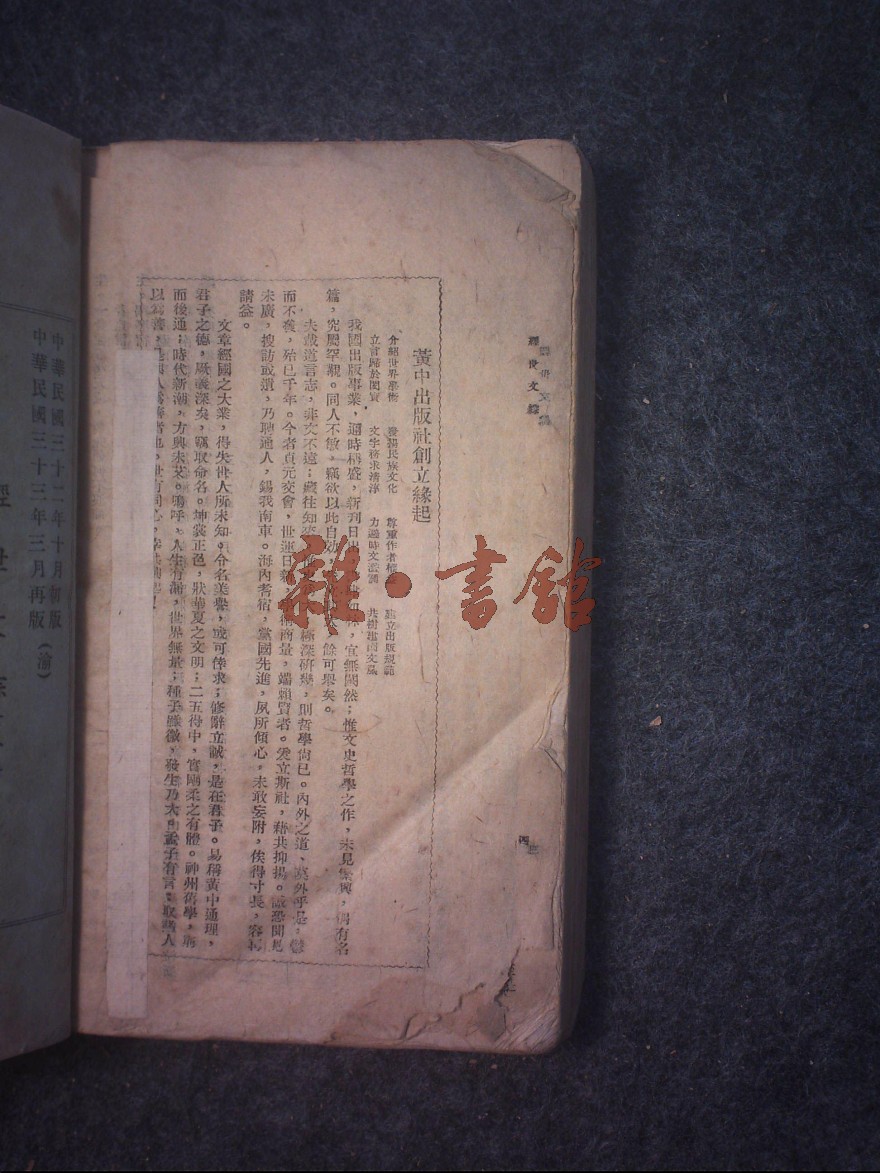 黃中出版社創立緣起
介紹世界學術 發揚民族文化 尊重作者權 建立出版規範
立言歸於閎實 文字務求清淳 力遏時文 共樹
我國出版事業,邇時稱盛,新刊日出 宜無闕然;惟文史哲學之作,未見 有名
篇,究屬罕覯。同人不敏,竊欲以此自効 餘可舉矣。
夫載道言志,非文不遠;藏往知來 極深研幾,則哲學尚已。內外之道,莫外乎是,鬱
而不發,殆已千年。今者貞元交會,世運日新 商量,端賴賢者。爰立斯社,藉共抑揚。 恐聞見
未廣,搜訪或遺,乃聘通人,錫我南車。海內耆宿,黨國先進,夙所傾心。未敢妄附,俟得寸長,容再
請益。
文章經國之大業,得失世人所未知。令名美譽,或可倖求;修辭立誠,是在君子。易稱黃中通理,
君子之德,厥義深矣,竊取命名。坤裳正色,狀華夏之文明;二五得中,實剛柔之有體。神州舊學,
而後通;時代新潮,方興未艾。嗚呼,人生有涯,世界無量;種子雖微,發生乃大。孟子有言:取諸人
以為善,是與人為善者也,
經世文綜
四
雜·書館
中華民國三十二年十月初版
中華民國三十三年三月再版(渝)
經世